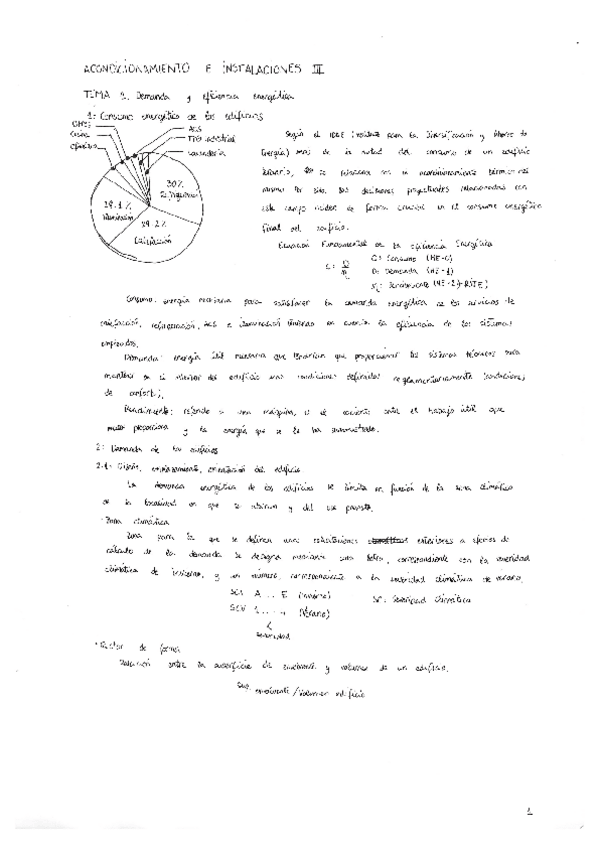 ACONDICIONAMIENTO E INSTALACIONES III
TEMA 1. Demanda y eficiencia energética
1: Consumo energético de los edificios
ACS
Cocina
Lavandería
30%
Refrigeración
19.1%
Iluminación
29.2%
Calefacción
Según el IDAE (Instituto para la Diversificación y Ahorro de
Energía) más de la mitad del consumo de un edificio
terciario, se relaciona con su acondicionamiento térmico
las decisiones proyectuales relacionadas con
este campo inciden de forma crucial en el consumo energético
final del edificio.
Ecuación Fundamental de la Eficiencia Energética
C: Consumo (HE-0)
D: Demanda (HE-1)
Rendimiento (HE-2)-RITE)
Consumo: energía necesaria para satisfacer la demanda energética de los servicios de
calefacción, refrigeración, ACS e iluminación teniendo en cuenta la eficiencia de los sistemas
empleados.
Demanda: energía útil necesaria que tendrían que proporcionar los sistemas técnicos para
mantener en el interior del edificio unas condiciones definidas reglamentariamente (condiciones
de confort).
Rendimiento: referido a una máquina, es el cociente entre el trabajo útil que
proporciona y la energía que se le ha suministrado.
2: Demanda de los edificios
2.1: Diseño, emplazamiento, orientación del edificio
La demanda energética de los edificios se limita en función de la zona climática
de la localidad en que se ubican y del uso previsto.
· Zona climática
Zona para la que se definen unas solicitaciones exteriores a efectos de
cálculo de la demanda. Se designa mediante una letra, correspondiente con la severidad
climática de invierno, y un número, correspondiente a la severidad climática de verano.
SCI A ... E (invierno)
SCV 1 ... 4 (Verano)
SC: Severidad Climática
Severidad
· Factor de forma
Relación entre la superficie de envolvente y volumen de un edificio.
Sup. envolvente / Volumen edificio
1